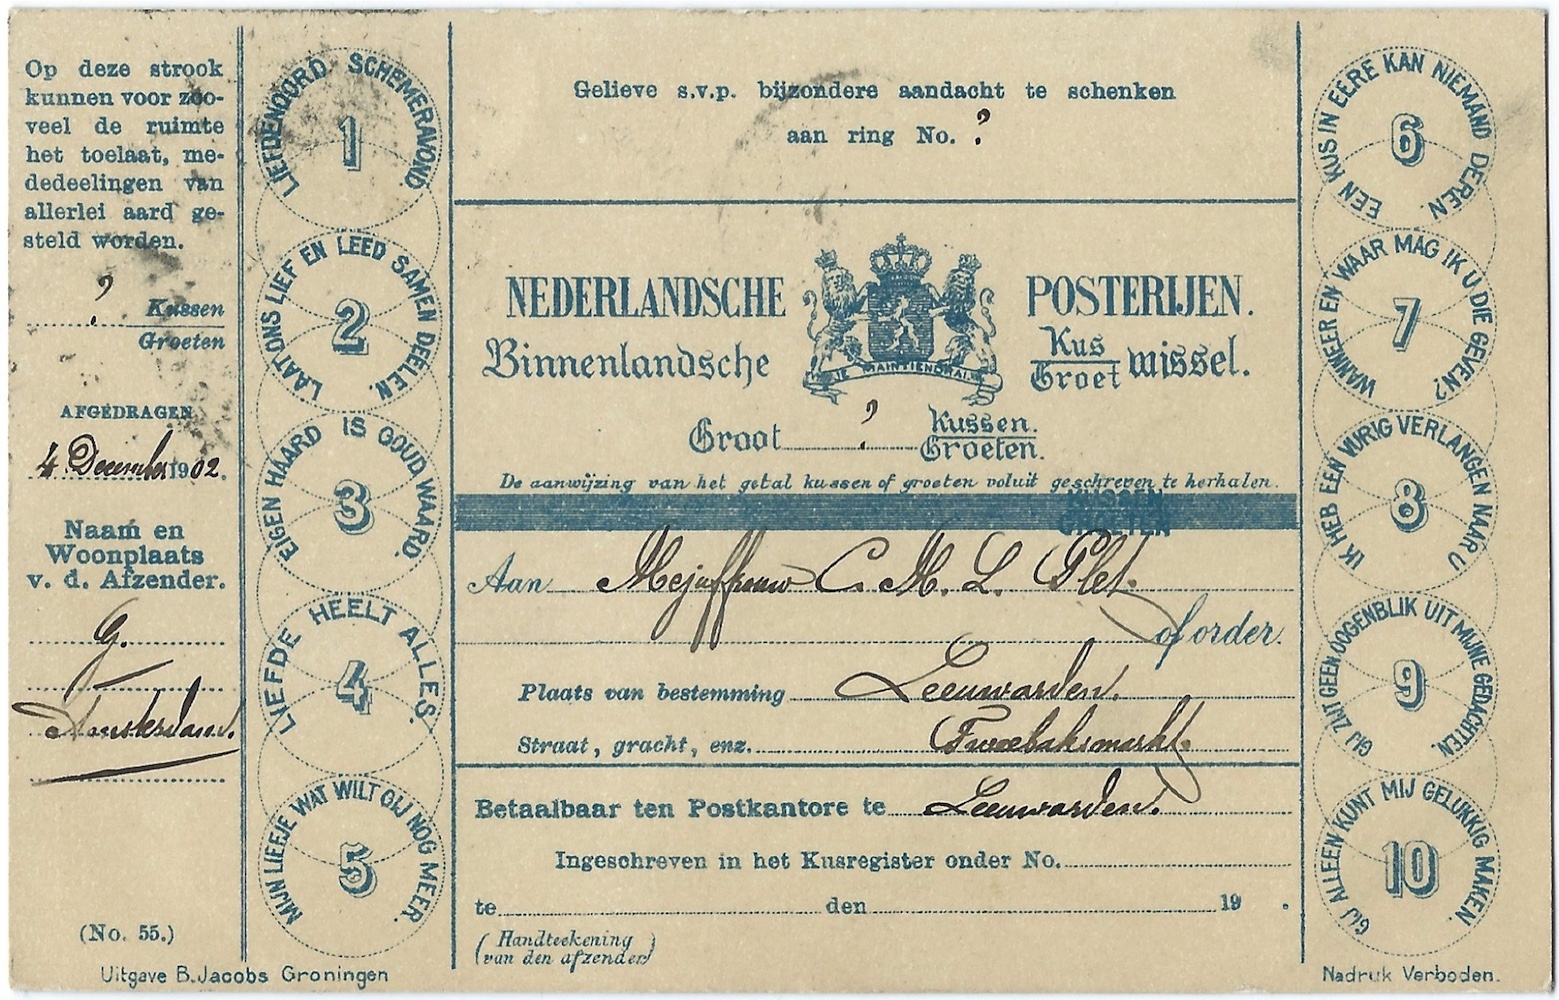 Op deze strook
kunnen voor zoo-
veel de ruimte
het toelaat, me-
dedeelingen van
allerlei aard ge-
steld worden.
? Kussen
Groeten
AFGEDRAGEN
4 December 1902.
Naam en
Woonplaats
v. d. Afzender.
G.
Amsterdam.
(No. 55.)
Uitgave B. Jacobs Groningen
LIEFDENOORD SCHEMERAVOND.
1
LAAT ONS LIEF EN LEED SAMEN DEELEN.
2
EIGEN HAARD IS GOUD WAARD.
3
LIEFDE HEELT ALLES.
4
MIJN LIEFJE WAT WILT GIJ NOG MEER.
5
Gelieve s.v.p. bijzondere aandacht te schenken
aan ring No. ?
NEDERLANDSCHE POSTERIJEN.
Binnenlandsche Kus wissel.
Groet
JE MAINTIENDRAI
Groot ? Kussen.
Groeten.
De aanwijzing van het getal kussen of groeten voluit geschreven te herhalen.
KUSSEN
GROETEN
Aan Mejuffrouw C. M. L. Plet.
of order.
Plaats van bestemming Leeuwarden.
Straat, gracht, enz. Tweebaksmarkt.
Betaalbaar ten Postkantore te Leeuwarden.
Ingeschreven in het Kusregister onder No.
te den 19 .
(Handteekening
van den afzender)
EEN KUS IN EERE KAN NIEMAND DEREN
6
WANNEER EN WAAR MAG IK U DIE GEVEN?
7
IK HEB EEN VURIG VERLANGEN NAAR U
8
GIJ ZIJT GEEN OOGENBLIK UIT MIJNE GEDACHTEN.
9
GIJ ALLEEN KUNT MIJ GELUKKIG MAKEN.
10
Nadruk Verboden.